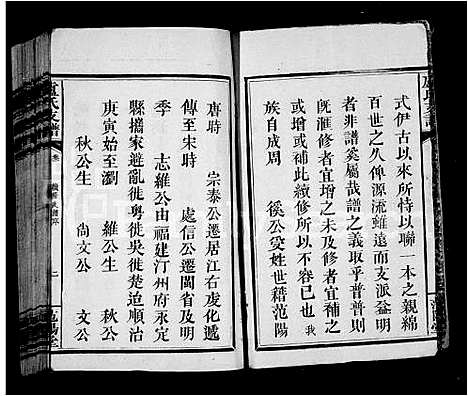 式伊古以來所恃以聯一本之親綿
百世之久俾源流雖遠而支派益明
者非譜奚屬哉譜之義取乎普普則
旣滙修者宜增之未及修者宜補之
或增或補此續修所不容已也我
族自成周 徯公受姓世籍范陽
唐時 宗泰公遷居江右虔化遞
傳至宋時 處信公遷閩省及明
季 志維公由福建汀州府永定
縣攜家避亂徙粵徙吳徙楚迨順治
庚寅始至瀏 維公 秋公
秋公生 尙文公 文公
盧氏家譜
卷
七
范陽堂